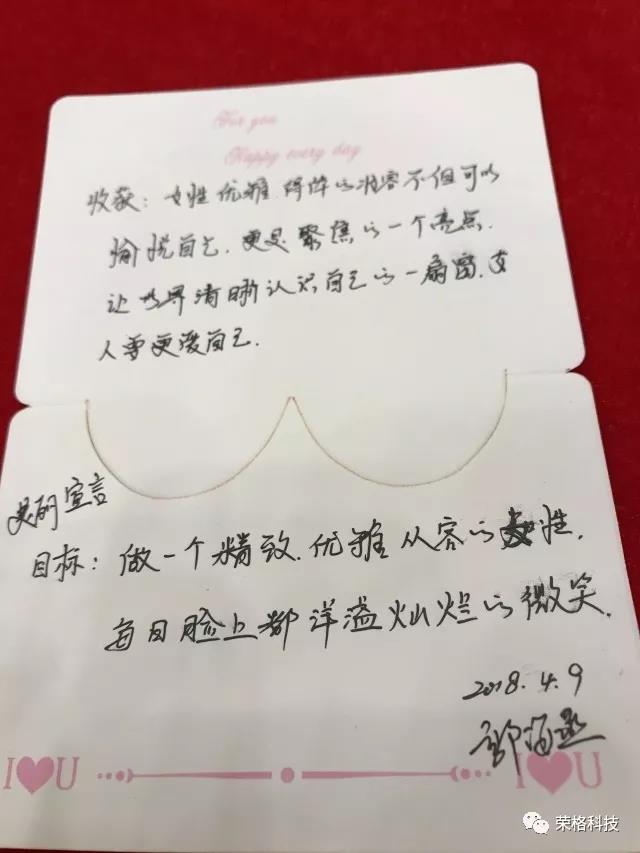 For you
Happy every day
收获：女性优雅、得体的妆容不但可以
愉悦自己，更是聚焦的一个亮点，
让世界清晰认识自己的一扇窗，女
人要更爱自己.
美丽宣言
目标：做一个精致、优雅从容的女性，
每日脸上都洋溢灿烂的微笑.
2018.4.9
I U
I U
荣格科技